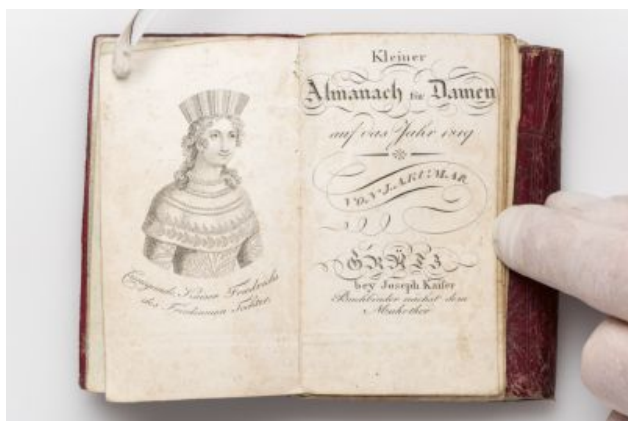 Kaiser Friedrichs
des Friedsamen Tochter
Kleiner
Almanach für Damen
auf das Jahr 1819
VON J. A. KUMAR
GRÄTZ
bey Joseph Kaiser
Buchbinder nächst dem
Murthor